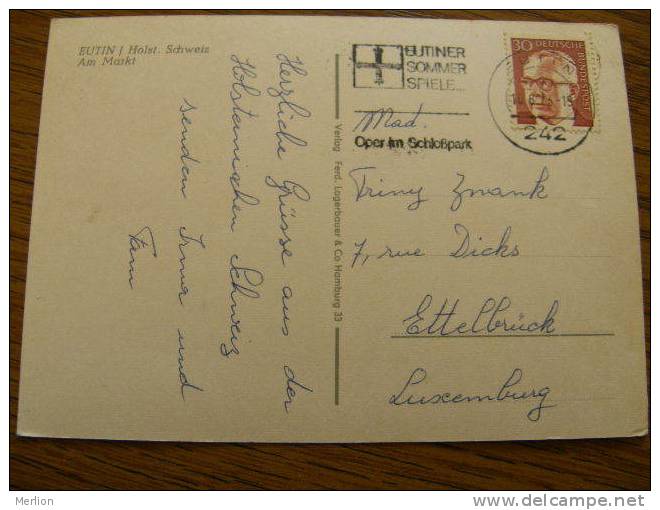 EUTIN / Holst. Schweiz
Am Markt
Herzliche Grüsse aus der
Holsteinischen Schweiz
senden Irma und
Fam
Verlag Ferd. Lagerbauer & Co Hamburg 33
EUTINER
SOMMER
SPIELE...
Oper im Schloßpark
30 DEUTSCHE BUNDESPOST
242
Mad.
Triny Zwank
7, rue Dicks
Ettelbrück
Luxemburg
Merlion
www.delcampe.net